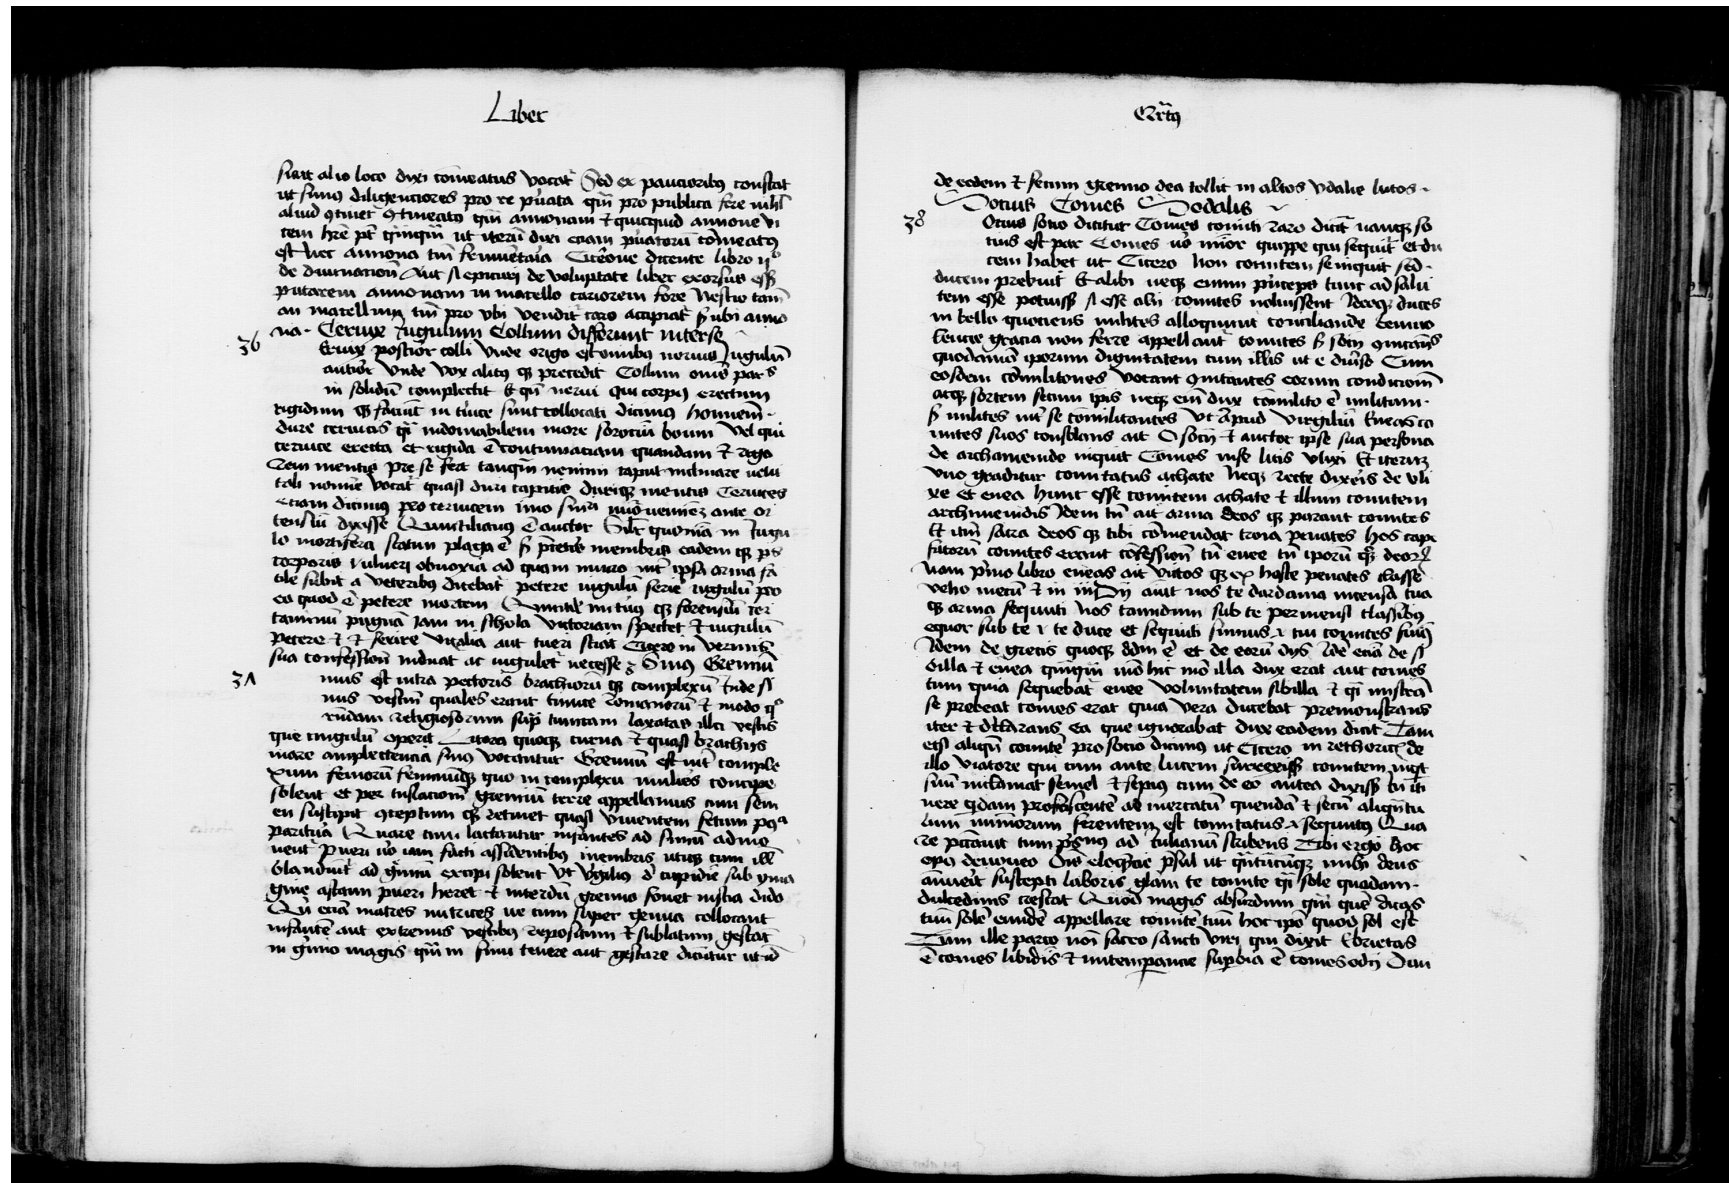 Liber
sicut alio loco dixi comeatus vocat᷑ Sed ex paucioribꝰ constat
ut simꝰ diligenciores pro re pͥuata qͣm pro publica fere nihil
aliud ꝯtinet ꝯmeatꝰ qͣm annonam et quicquid annone vi
cem hr̄e pt̄ qͣnqͣm ut iterū dixi etiam pͥuatorū cōmeatꝰ
est hec annona tm̄ fermētaria Cicerone dicente libro ijº
de diuinacion̄ Aut si epicurꝰ de voluptate liber exorsus ess̄
putarem annonam in macello cariorem fore Nescio tam̄
an macellum tm̄ pro vbi vendit᷑ caro accipiat᷑ sꝫ ubi anno
na · Ceruix Jugulum Collum differunt inter se
36
Eruix postior colli vnde origo est omnibꝰ neruis Jugulū
anterior vnde vox alitꝰ qꝫ precedit Collum omēs partes
in solidū complectit᷑ Et qm̄ nerui qui corpꝰ erectum
rigidum qꝫ faciūt in ceruice sunt collocati dicimus hominem
dure ceruicis qͣsi indomabilem more ferociū boum vel qui
ceruice erecta et rigida ē contumaciam quandam et rigo
rem mentis pre se fert tanqͣm nemini caput inclinare velit
tali nomine vocat᷑ quasi duri capitis dureqꝫ mentis Ceruices
etiam dicimus pro ceruicem imo singͥ numero neminem ante or
tensiū dixisse Quintilianus ē auctor Silr̄ quoniā in Jugu
lo mortifera statim plaga ē sꝫ p̄ ceteris membris eadem qꝫ ps̄
corporis vulneri obnoxia ad quam mucro int᷑ ipsa arma fa
cile subit a veteribus dicebat᷑ petere iugulū ferire iugulū pro
eo quod ē petere mortem Quintil᷑ mitiꝰ qꝫ forensiū cer
taminū pugnā iam in schola victoriam spectet et iugulū
petere et et ferire vitalia aut tueri sciat Cicero in verrinis
sua confession̄ induat ac iugulet᷑ necesse ē Sinus Gremiū
37
inus est intra pectoris brachiorū qꝫ complexū Inde si
nus vestiū quales erant tunice romanorū et modo qͦ
rundam religiosorum sup᷑ tunicam laxatas illa vestis
que cingulū operit Litora quoqꝫ curua et quasi brachijs
mare amplectencia sinꝰ vocantur Gremiū est int᷑ comple
xum femorū feminūqꝫ quo in complexu mulies concipe
solent et per translacion̄ gremiū terre appellamus cum sem
en suscipit ꝯceptum qꝫ retinet quasi viuentem fetum posᵗ
paritura Quare cum lactantur infantes ad sinum admo
uent᷑ Pueri vo iam facti assidentibꝰ membris utiqꝫ cum ill̄
blandiūt᷑ ad gͥmiū excipi solent Vt Virgiliꝰ de cupidie sub yma
gine astam pueri heret et interdū gremio fouet inscia dido
Qui etiā matres nutrices ve cum super genua collocant
infantē aut extremis vestibꝰ repositum et sublatum gestat
in gͥmio magis qͣm in sinu tenere aut gestare dicitur ut id
Qͬtꝰ
de eodem et fetum gremio dea tollit in altos ydalie lucos ·
Socius Comes Sodalis
38
Ocius socio dicitur Comes comiti raro dicit᷑ nanqꝫ so
cius est par Comes vo minor quippe qui sequit᷑ et du
cem habet ut Cicero Non comitem se inquit sed
ducem prebuit Et alibi neqꝫ enim pͥnceps tunc ad salu
tem esse potuiss̄ si esse alij comites noluissent Itaqꝫ duces
in bello quotiens milites alloquunt᷑ conciliande beniuo
lencie gracia non ferre appellant comites sꝫ socij ꝯmitantis
quodammō ipsorum dignitatem cum illis ut e diuerso Cum
eosdem cōmilitones vocant ꝯmitantes eorum condicionem
atqꝫ sortem secum ipsis neqꝫ eni dux comilito ē militum
sꝫ milites int᷑ se comilitantes Vt apud Virgiliū Eneas co
mites suos consolans ait O socij et auctor ipse sua persona
de archimenide inquit Comes infelicis vlixi Et iterum
vno graditur comitatus achate Neqꝫ recte dixeris de vli
xe et enea hunc esse comitem achate et illum comitem
archimenidis Idem tn̄ ait arma deos qꝫ parant comites
Et itm̄ sacra deos qꝫ tibi cōmendat troia penates hos cape
fatorū comites erant cōfession̄ tn̄ enee tn̄ ipsorū qꝫ deorum
Nam pͥmo libro eneas ait victos qꝫ ex hoste penates classe
veho mecū et in iij Dij aiūt nos te dardania incensa tua
qꝫ arma sequuti nos tumidum sub te permensi classibus
equor sub te et te duce et sequuti sumus et tui comites fuimꝰ
Idem de grecis quoqꝫ dictum ē et de eorū dijs Idē etiā de si
billa et enea qͣnqͣm mō hic mō illa dux erat aut comes
cum quia sequebat᷑ enee voluntatem sibilla et qͣsi ministrā
se prebeat comes erat quia vera ducebat premonstrans
iter et declarans ea que ignorabat dux eadem dicit᷑ Tam
etsi aliqn̄ comitē pro socio dicimus ut Cicero in rethoric̄ de
illo viatore qui cum ante lucem surrexiss̄ comitem inqt
suū inclamat semel et sepius cum de eo antea dixiss̄ in iti
nere qͥdam proficiscentē ad mercatū quendā et secū aliqn̄tu
lum nūmorum ferentem est comitatus et sequutꝰ Qua
re peccauit cum pͥmus ad iulianū scribens Tibi ergo hoc
opus deuoueo Oīs eloqͥcie p̄sul ut qͣntūcūqꝫ mihi deus
annuerit suscepti laboris gloriam te comite qͣsi sole quodam
dulcedinis crescat Quod magis absurdum qͣm quē dicas
tuū solē eundē appellare comitē tuū hoc ipso quod sol est
Tum ille parco noī sacro sancti viri qui dixit Ebrietas
ē comes libidis et intemperancie superbia ē comes odij Diui